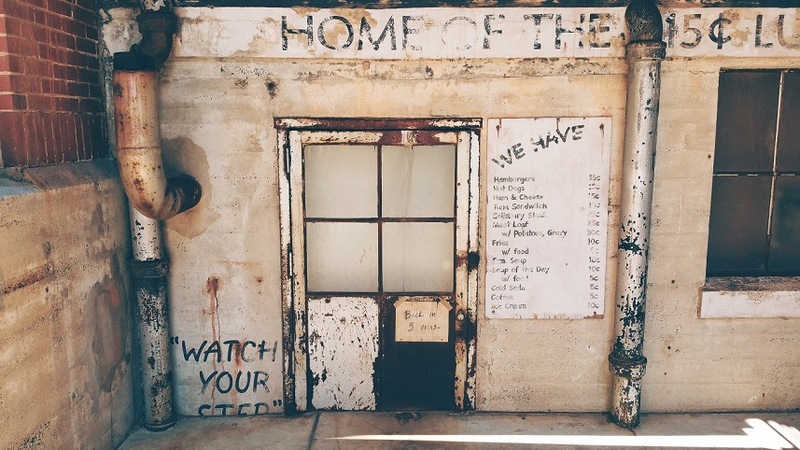 HOME OF THE 15¢ LU
WE HAVE
Hamburgers 15c
Hot Dogs
Ham & Cheese 15c
Tuna Sandwich
Salisbury Steak
Meat Loaf
w/ Potatoes, Gravy 30c
Fries 10c
w/ food
Tom. Soup 10c
Soup of the Day 10c
w/ food 5c
Cold Soda 5c
Coffee 5c
Ice Cream 10c
Back in
5 mins.
"WATCH
YOUR
STEP"